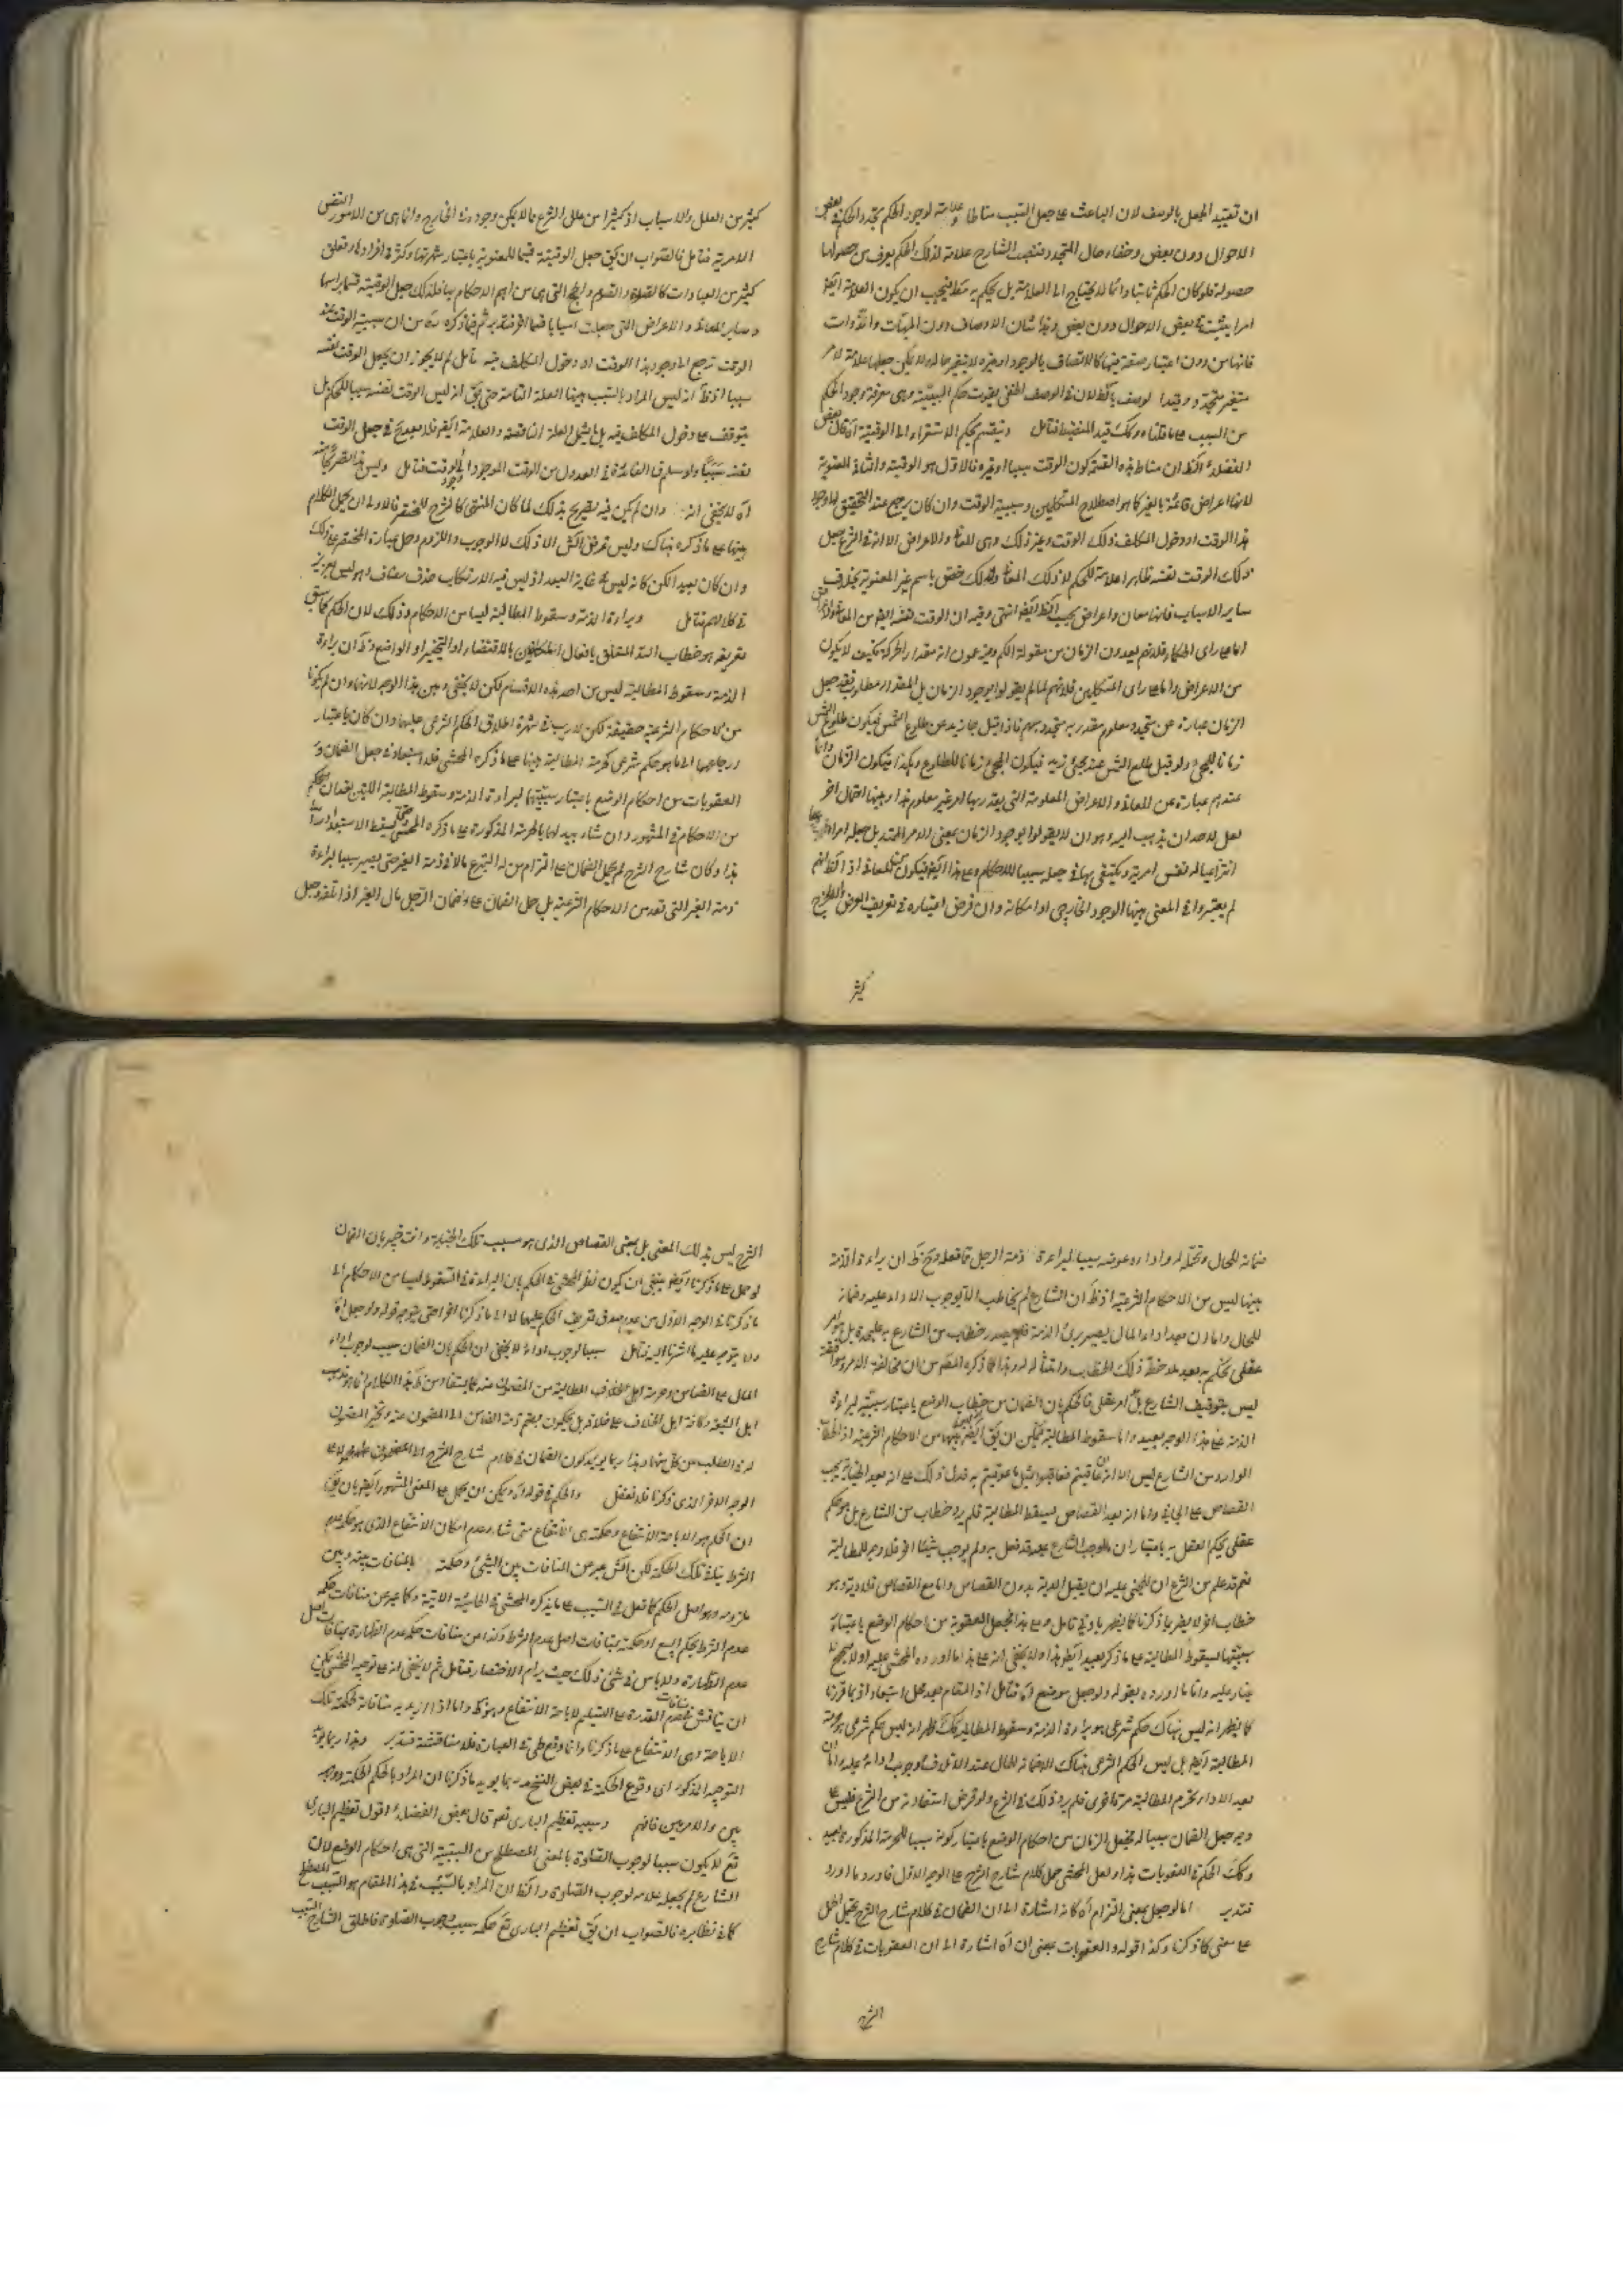 ان تقييد الجعل بالوصف لان الباعث على جعل السبب مناطا وعلامة لوجود الحكم تجدد الحكم في بعض
الاحوال دون بعض وخفاء حال المتجدد فنصب الشارح علامة لذلك الحكم يعرف من حصولها
حصوله فلو كان الحكم ثابتا دائما لا يحتاج الى العلامة بل يحكم به فيجب ان يكون العلامة ايضا
امرا يثبت في بعض الاحوال دون بعض وهذا شان الاوصاف دون والذوات
فانها من دون اعتبار صفة فيها كالاتصاف بالوجود او غيره لا يتغير حاله ولا يمكن جعلها علامة لامر
متغير متجدد الوصف بالظ لان في الوصف الخفي يفوت حكم السببية وهي معرفة وجود الحكم
من السبب على ما قلناه وكك قيد المنضبط فتامل وينقسم بحكم الاستقراء الى الوقتية آه قال بعض
الفضلاء الظ ان مناط هذه القسمة كون الوقت سببا او غيره فالاول هو الوقتية والثاني المعنوية
لانها اعراض قائمة بالغير كما هو اصطلاح المتكلمين وسببية الوقت وان كان يرجع عند التحقيق الى وجود
هذا الوقت او دخول المكلف ذلك الوقت وغير ذلك وهي المعاني والاعراض الا انه في الشرع جعل
ذلك الوقت نفسه ظاهرا علامة للحكم لا ذلك المعاني فلذلك خص باسم غير المعنوية بخلاف
ساير الاسباب فانها معان واعراض بحسب الظ ايضا انتهى وفيه ان الوقت نفسه ايضا من المعاني
اما على راى الحكماء فلانهم يعدون الزمان من مقولة الكم ويدعون انه مقدار الحركة فكيف لا يكون
من الاعراض واما على راى المتكلمين فلانهم لما لم يقولوا بوجود الزمان بل المقدار فقد جعل
الزمان عبارة عن متجدد معلوم مقدر به متجدد مبهم فاذا قيل جاء زيد عند طلوع الشمس فيكون طلوع الشمس
زمانا للمجيء ولو قيل طلع الشمس عند مجيء زيد فيكون المجيء زمانا للطلوع وهكذا فيكون الزمان دائما
عندهم عبارة عن المعاني والاعراض المعلومة التي يقدر بها امر غير معلوم هذا وهيهنا احتمال اخر
لعل لاحد ان يذهب اليه وهو ان لا يقولوا بوجود الزمان بمعنى الامر الممتد بل جعله امرا
انتزاعيا له نفس امرية ويكتفي بها في جعله سببا للاحكام وعلى هذا ايضا فيكون من المعاني اذ الظ انهم
لم يعتبروا في المعنى هيهنا الوجود الخارجي او امكانه وان فرض اعتباره في تعريف العرض
كثير
كثير من العلل والاسباب اذ كثيرا من علل الشرع ما لا يكون وجوده في الخارج وانما هي من الامور النفس
الامرية فتامل فالصواب ان يق جعل الوقتية قسيما للمعنوية باعتبار شهرتها وكثرة افرادها وتعلق
كثير من العبادات كالصلوة والصوم والحج التي هي من اهم الاحكام بها فلذلك جعل الوقتية قسما براسها
وساير المعاني والاعراض التي جعلت اسبابا قسما اخر فتدبر ثم فيما ذكره من ان سببية الوقت عند
الوقت ترجع الى وجود هذا الوقت او دخول المكلف فيه تامل لم لا يجوز ان يجعل الوقت نفسه
سببا اذ الظ انه ليس المراد بالسبب هيهنا العلة التامة حتى يق انه ليس الوقت نفسه سببا للحكم بل
يتوقف على دخول المكلف فيه بل ما يشمل العلة الناقصة والعلامة ايضا فلا بعد في جعل الوقت
نفسه سببا ولو سلم فما الفائدة في العدول من الوقت الموجود الى وجود الوقت فتامل وليس هذا
آه لا يخفى انه وان لم يكن فيه تصريح بذلك لما كان المنتهى كالشرح للمختصر فالاولى ان يحمل الكلام
هيهنا على ما ذكره هناك وليس غرض الا ذلك لا الوجوب واللزوم وحمل عبارة المختصر على ذلك
وان كان بعيدا لكن كانه ليس في غاية البعد اذ ليس فيه الا ارتكاب حذف مضاف وهو ليس بعزيز
في كلامهم فتامل وبراءة الذمة وسقوط المطالبة ليسا من الاحكام وذلك لان الحكم كما سبق
تعريفه هو خطاب الله المتعلق بافعال المكلفين بالاقتضاء او التخيير او الوضع وظ ان براءة
الذمة وسقوط المطالبة ليس من احد هذه الاقسام لكن لا يخفى وهن هذا الوجه لانهما وان لم يكونا
من الاحكام الشرعية حقيقة لكن لا ريب في شهرة اطلاق الحكم الشرعي عليهما وان كان باعتبار
ارجاعهما الى ما هو حكم شرعي كحرمة المطالبة هيهنا على ما ذكره المحشي فلا استبعاد في جعل الضمان و
العقوبات من احكام الوضع باعتبار سببيتها لبراءة الذمة وسقوط المطالبة
من الاحكام في المشهور وان شاء يبدلهما بالحرمة المذكورة على ما ذكره المحشي فيسقط الاستبعاد راسا
هذا وكان شارح الشرح لم يحمل الضمان على التزام من له التبرع مالا في ذمة الغير حتى يصير سببا لبراءة
ذمة الغير التي تعد من الاحكام الشرعية بل حمل الضمان على ضمان الرجل مال الغير اذا اتلفه وجعل
ضمانه للمال وتحمله له واداءه عوضه سببا لبراءة ذمة الرجل فافعله وح ظ ان براءة الذمة
هيهنا ليس من الاحكام الشرعية اذ ظ ان الشارع لم يخاطب الا بوجوب الاداء عليه وضمانه
للمال واما ان بعد اداء المال يصير بريء الذمة فلم يصدر خطاب من الشارع به عليحدة بل هو امر
عقلي يحكم به بعد ملاحظة ذلك الخطاب وامتثاله له وهذا كما ذكره المصنف من ان مخالفة الامر وموافقته
ليس بتوقيف الشارع بل امر عقلي فالحكم بان الضمان من خطاب الوضع باعتبار سببيته لبراءة
الذمة على هذا الوجه بعيد واما سقوط المطالبة فيمكن ان يق ايضا انه ليس هيهنا من الاحكام الشرعية اذ الخطاب
الوارد من الشارع ليس الا ان عاقبتم فعاقبوا بمثل ما عوقبتم به فدل ذلك على انه بعد الجناية يجب
القصاص على الجاني واما انه بعد القصاص يسقط المطالبة فلم يرد خطاب من الشارع بل هو حكم
عقلي يحكم العقل به باعتبار ان ما اوجب الشارع عليه قد فعل به ولم يوجب شيئا اخر فلا وجه للمطالبة
نعم قد علم من الشرع ان للمجني عليه ان يقبل الدية بدون القصاص واما مع القصاص فلا دية وهو
خطاب اخر لا يضر بما ذكرنا كما يظهر بادنى تامل وعلى هذا فجعل العقوبة من احكام الوضع باعتبار
سببيتها لسقوط المطالبة على ما ذكر بعيد ايضا هذا ولا يخفى انه على هذا ما اورده المحشي عليه اولا صحيح
غبار عليه واما ما اورده بقوله ولو جعل موضع آه فتامل اذ المقام بعد محل استبعاد اذ بما قررنا
كما يظهر انه ليس هناك حكم شرعي هو براءة الذمة وسقوط المطالبة كك ظهر انه ليس حكم شرعي هو حرمة
المطالبة ايضا بل ليس الحكم الشرعي هناك الا ضمانه للمال عند الاتلاف ووجوب اداءه عليه واما ان
بعد الاداء يحرم المطالبة مرة اخرى فلم يرد ذلك في الشرع ولو فرض استفادته من الشرع فليس على
وجه جعل الضمان سببا له فجعل الزمان من احكام الوضع باعتبار كونه سببا للحرمة المذكورة بعيد
وكك الحكم في العقوبات هذا ولعل المحشي حمل كلام شارح الشرح على الوجه الاول فاورد ما اورد
فتدبر اما لو حمل بمعنى التزام آه كانه اشارة الى ان الضمان في كلام شارح الشرح يحتمل الحمل
على معنى كما ذكرنا وكذا قوله والعقوبات بمعنى ان آه اشارة الى ان العقوبات في كلام شارح
الشرح
الشرح ليس بذلك المعنى بل بمعنى القصاص الذي هو مسبب تلك الجناية وانت خبير بان الضمان
لو حمل على ما ذكرنا ايضا ينبغي ان يكون نظر المحشي في الحكم بان البراءة والسقوط ليسا من الاحكام الى
ما ذكرنا في الوجه الاول من عدم صدق تعريف الحكم عليهما لا الى ما ذكرنا اخرا حتى يتوجه قوله ولو جعل آه
ولا يتوجه عليه ما اشرنا اليه فتامل سببا لوجوب اداء لا يخفى ان الحكم بان الضمان سبب لوجوب اداء
المال على الضامن وحرمة المطالبة من المضمون عنه كما يستفاد من ظ هذا الكلام انما هو مذهب
اهل الشيعة وكافة اهل الخلاف على خلافه بل يحكمون بضم ذمة الضامن الى المضمون عنه وتخير المضمون
له في الطلب من كل منهما وهذا ربما يؤيد كون الضمان في كلام شارح الشرح
الوجه الاخر الذي ذكرنا فلا تغفل والحكم في قوله آه ويمكن ان يحمل على المعنى المشهور ايضا بان يق
ان الحكم هو الاباحة الانتفاع وحكمته هي الانتفاع متى شاء وعدم امكان الانتفاع الذي هو حكمة عدم
الشرط ينافي تلك الحكمة لكن الشارح عبر عن المنافات بين الشيء وحكمة بالمنافات بينه وبين
ملزومه وهو اصل الحكم كما فعل في السبب على ما يذكره المحشي في الحاشية الاتية وكما عبر عن منافات حكمة
عدم الشرط بحكم البيع او حكمته بمنافات اصل عدم الشرط وكذا من منافات حكمة عدم الطهارة بمنافات اصل
عدم الطهارة ولا باس في شيء ذلك حيث يرام الاختصار فتامل ثم لا يخفى انه على توجيه المحشي يمكن
ان يناقش بعدم منافات القدرة على التسليم لاباحة الانتفاع وهو ظ واما اذا اريد به منافاته لحكمة تلك
الاباحة وهي الانتفاع على ما ذكرنا وانما وقع طي في العبارة فلا مناقشة فتدبر وهذا ربما يؤيد
التوجيه المذكور اي وقوع الحكمة في بعض النسخ ربما يؤيد ما ذكرنا ان المراد بالحكم الحكمة ووجهه
بين والامر هين فافهم وسببيه تعظيم الباري تع قال بعض الفضلاء اقول تعظيم الباري
تع لا يكون سببا لوجوب الصلوة بالمعنى المصطلح من السببية التي هي احكام الوضع لان
الشارع لم يجعله علامة لوجوب الصلوة والظ ان المراد بالسبب في هذا المقام هو السبب المصطلح
كما في نظائره فالصواب ان يق تعظيم الباري تع حكمة سبب وجوب الصلوة فاطلق الشارح السبب